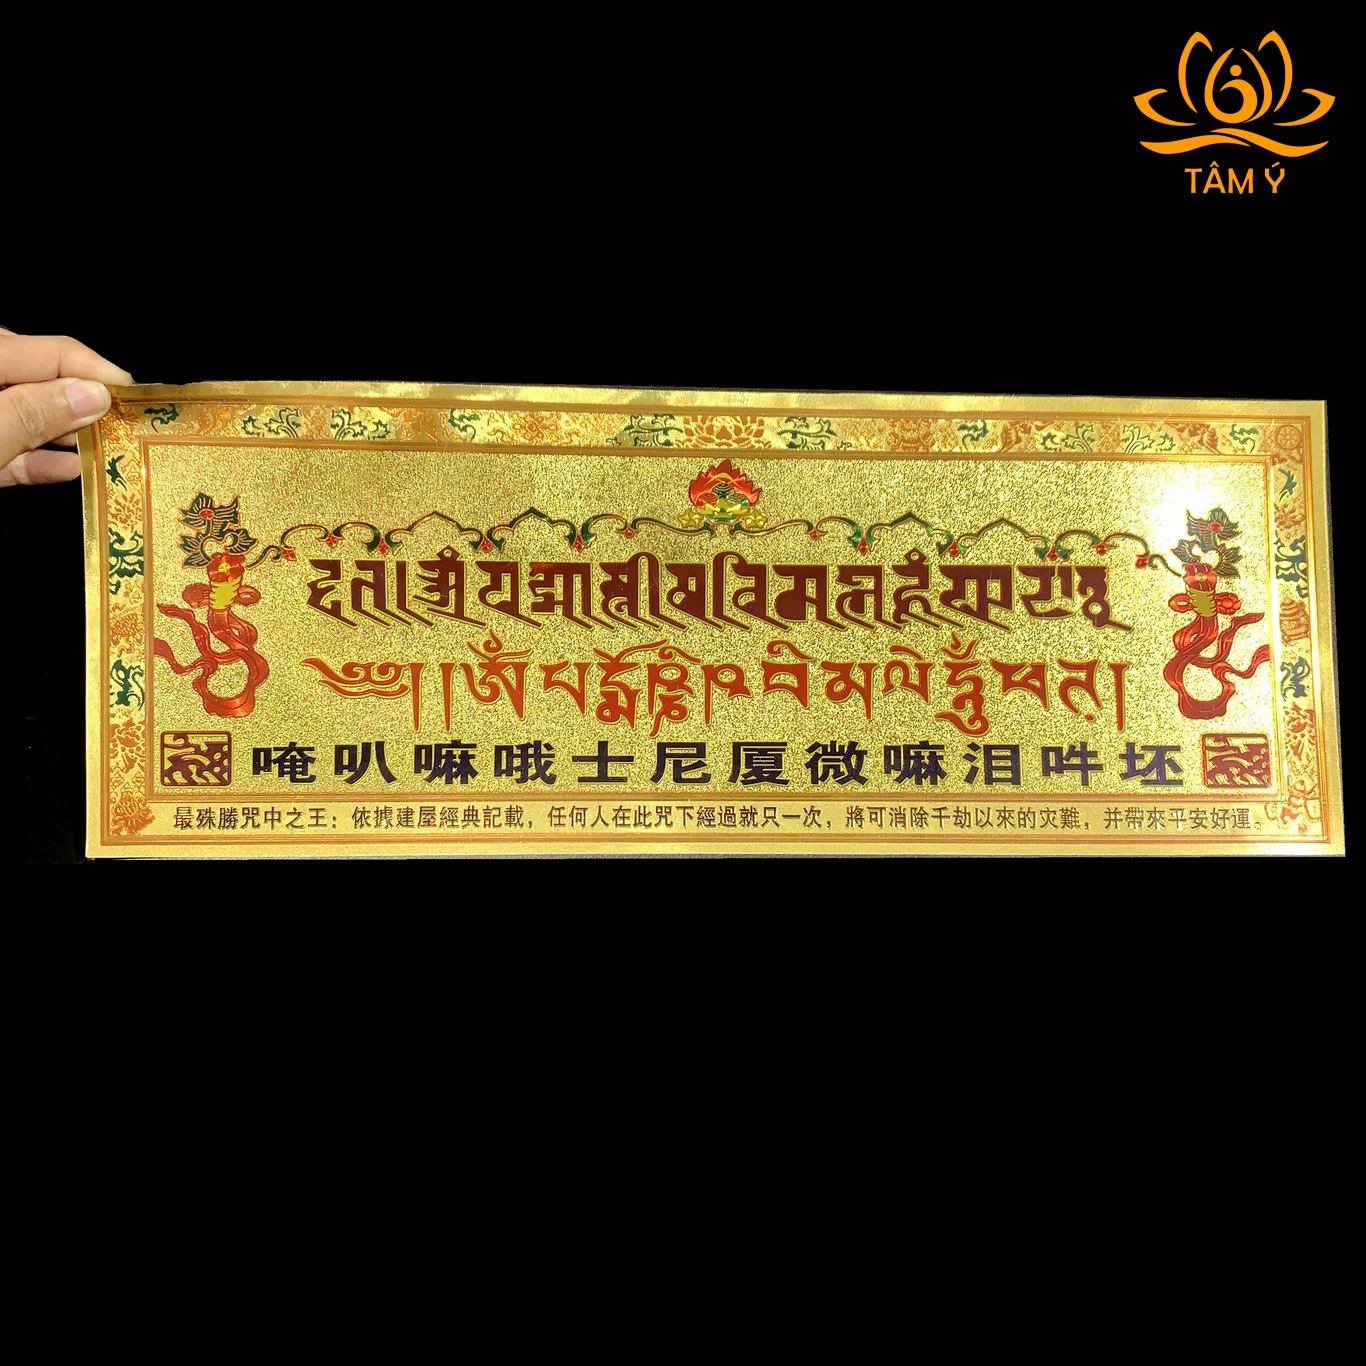 TÂM Ý
༄༅། །ཨོཾ་པདྨོ་ཥྞཱི་ཥ་བི་མ་ལེ་ཧཱུྃ་ཕཊ།
唵叭嘛哦士尼厦微嘛泪吽坯
最殊勝咒中之王：依據建屋經典記載，任何人在此咒下經過就只一次，將可消除千劫以來的灾難，并帶來平安好運。